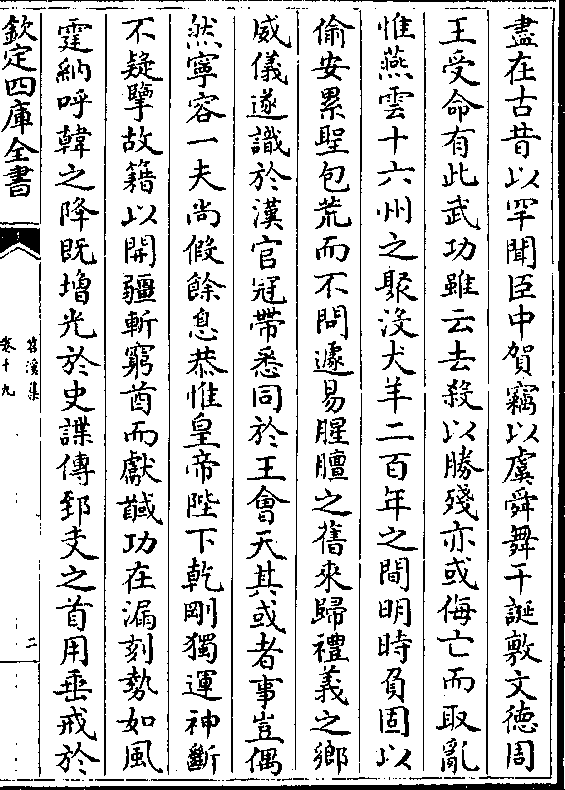 盡在古昔以罕聞臣中賀竊以虞舜舞干誕敷文德周
王受命有此武功雖云去殺以勝殘亦或侮亡而取亂
惟燕雲十六州之聚沒犬羊二百年之間明時負固以
偷安累聖包荒而不問遽易腥膻之舊來歸禮義之鄉
威儀遂識於漢官冠帶悉同於王會天其或者事豈偶
然寧容一夫尚假餘息恭惟皇帝陛下乾剛獨運神斷
不疑擥故籍以開疆斬窮酋而獻馘功在漏刻勢如風
霆納呼韓之降既增光於史諜傳郅支之首用垂戒於
欽定四庫全書
苕溪集
卷十九
二